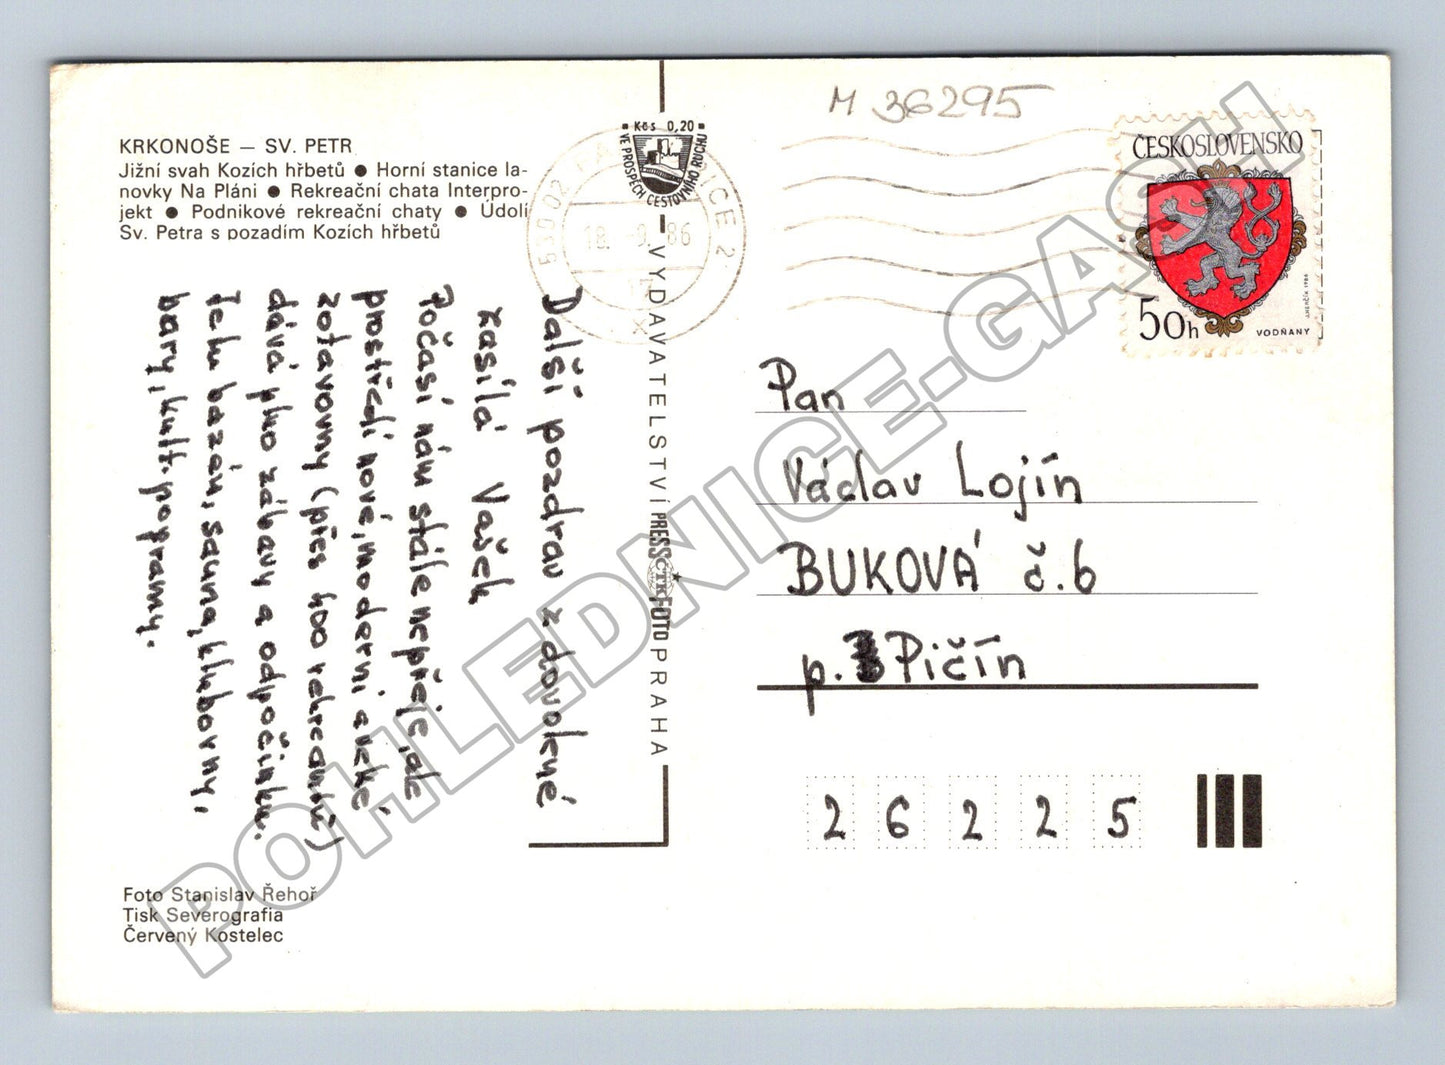 M 36295
KRKONOŠE — SV. PETR
Jižní svah Kozích hřbetů ● Horní stanice la-
novky Na Pláni ● Rekreační chata Interpro-
jekt ● Podnikové rekreační chaty ● Údolí
Sv. Petra s pozadím Kozích hřbetů
Kčs 0,20
VE PROSPĚCH CESTOVNÍHO RUCHU
530 02 PARDUBICE 2
18. 9. 86
ČESKOSLOVENSKO
50h
VODŇANY
J. HERČÍK 1986
Další pozdrav z dovolené
zasílá Vašek
Počasí nám stále nepřeje, ale
prostředí nové, moderní, a velké
zotavovny (přes 400 rekreantů)
dává plno zábavy a odpočinku.
Je tu bazén, sauna, klubovny,
bary, kult. pogramy.
VYDAVATELSTVÍ PRESSFOTO PRAHA
ČTK
Pan
Václav Lojín
BUKOVÁ č.6
p. Pičín
26225
Foto Stanislav Řehoř
Tisk Severografia
Červený Kostelec
POHLEDNICE-GASH